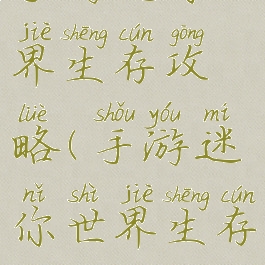 jiè shēng cún gòng
界生存攻
lüè shǒu yóu mí
略(手游迷
nǐ shì jiè shēng cún
你世界生存